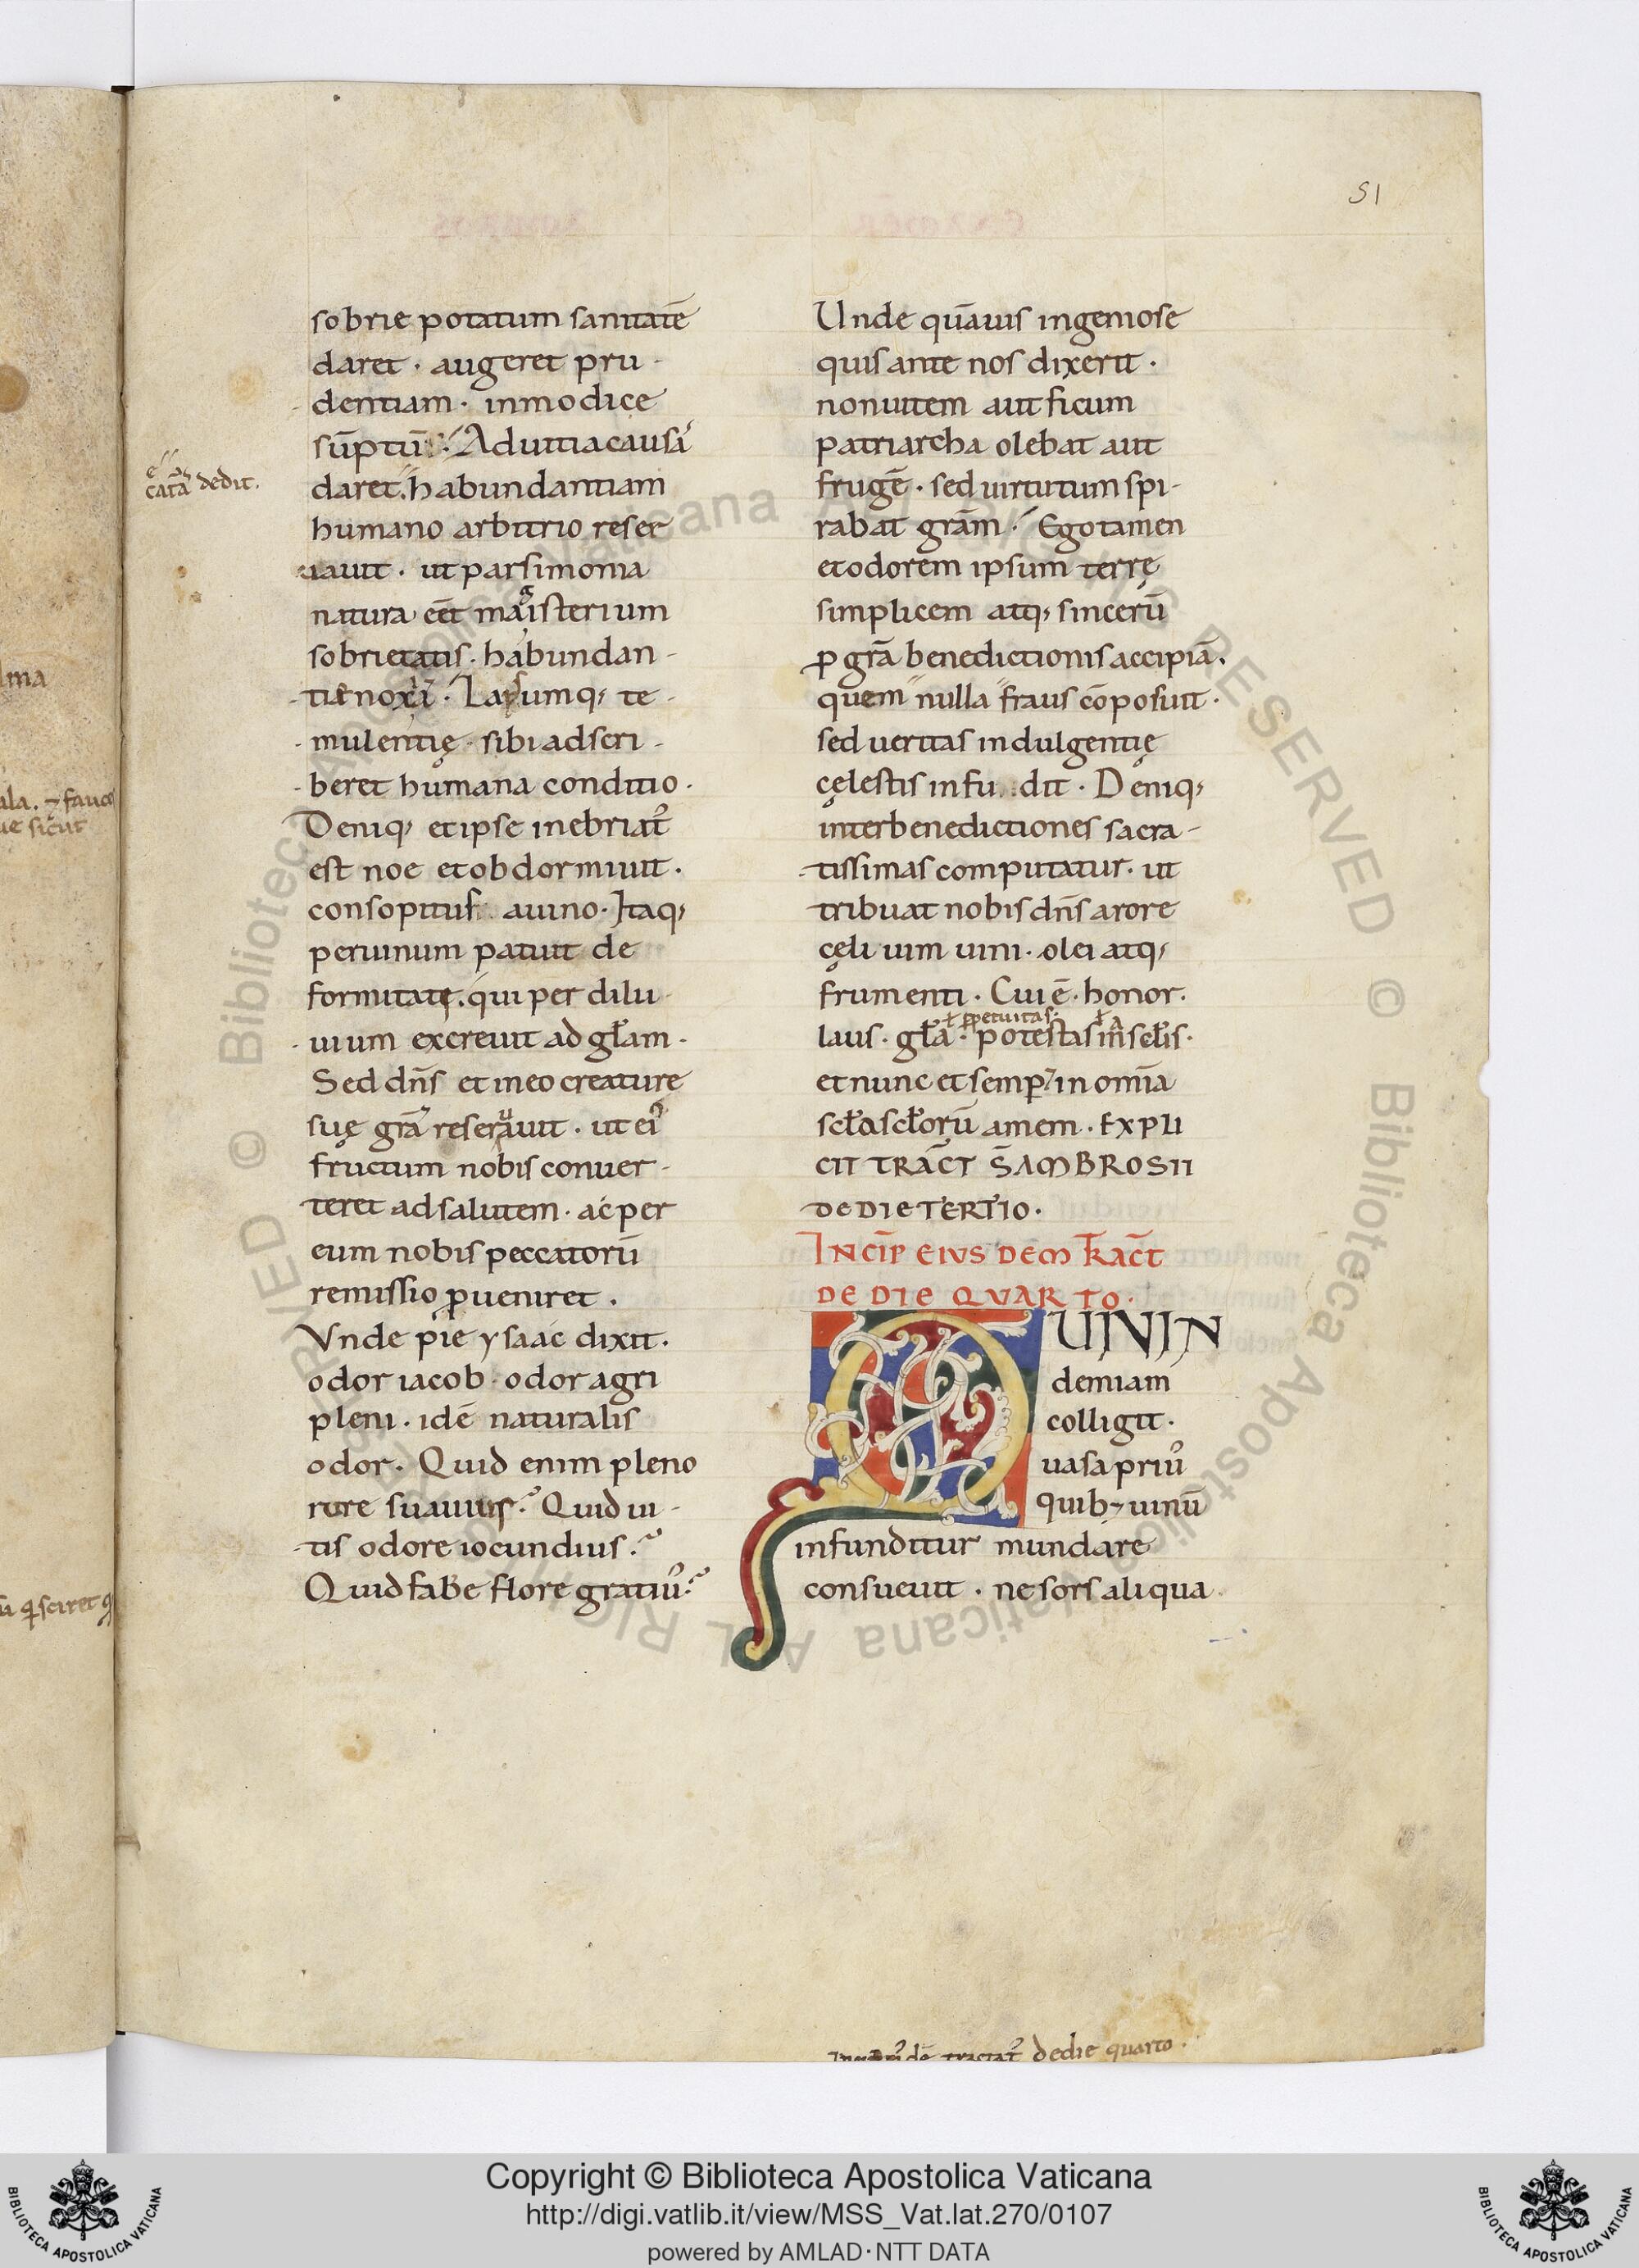 51
sobrie potatum sanitatē
daret · augeret pru-
dentiam · inmodice
sūptū Ad uitia causā
cat̄a dedit.
daret. habundantiam
humano arbitrio reser
uauit · ut parsimonia
natura eēt magisterium
sobrietatis · habundan-
tie noxā · Lapsumq; te-
mulentię · sibi adscri-
beret humana conditio ·
Deniq; et ipse inebriat᾿
est noe et obdormiuit ·
consopitus a uino · Itaq;
per uinum patuit de
formitatę. qui per dilu
uium excreuit ad gl̄am ·
Sed dn̄s et in eo creature
suę grā reserauit · ut ei᾿
fructum nobis conuer-
teret ad salutem · ac per
eum nobis peccatorū
remissio ꝓueniret .
Vnde pie ysaac dixit.
odor iacob · odor agri
pleni · idē naturalis
odor. Quid enim pleno
rure suauius? Quid ui-
tis odore iocundius?
Quid fabe flore gratiu᾿?
Unde quāuis ingeniose
quis ante nos dixerit ·
non uitem aut ficum
patriarcha olebat aut
frugē · sed uirtutum spi-
rabat grām · Ego tamen
et odorem ipsum terrę
simplicem atq; sincerū
ꝓ grā benedictionis accipiā.
quem nulla fraus cōposuit ·
sed ueritas indulgentię
cęlestis infudit · Deniq;
inter benedictiones sacra-
tissimas computatur · ut
tribuat nobis dn̄s arore
cęli uim uini · olei atq;
frumenti · Cui ē · honor.
ꝑpetuitas.
laus · gl̄a · potestas in scl̄is ·
et nunc et semp ⁊ in omīa
scl̄a scl̄orū amem · EXPLI
CIT TRAC̄T S̄ AMBROSII
DE DIE TERTIO ·
INCIP̄ EIUSDEM TRAC̄T
DE DIE QUARTO ·
QUI VIN
demiam
colligit ·
uasa priu᾿
quib; uinū
infunditur mundare
consueuit · ne sors aliqua
tractat᾿ de die quarto ·
ma
ala. ⁊ fauce
ue sicut
sciret
Copyright © Biblioteca Apostolica Vaticana
http://digi.vatlib.it/view/MSS_Vat.lat.270/0107
powered by AMLAD·NTT DATA
BIBLIOTECA APOSTOLICA VATICANA
BIBLIOTECA APOSTOLICA VATICANA